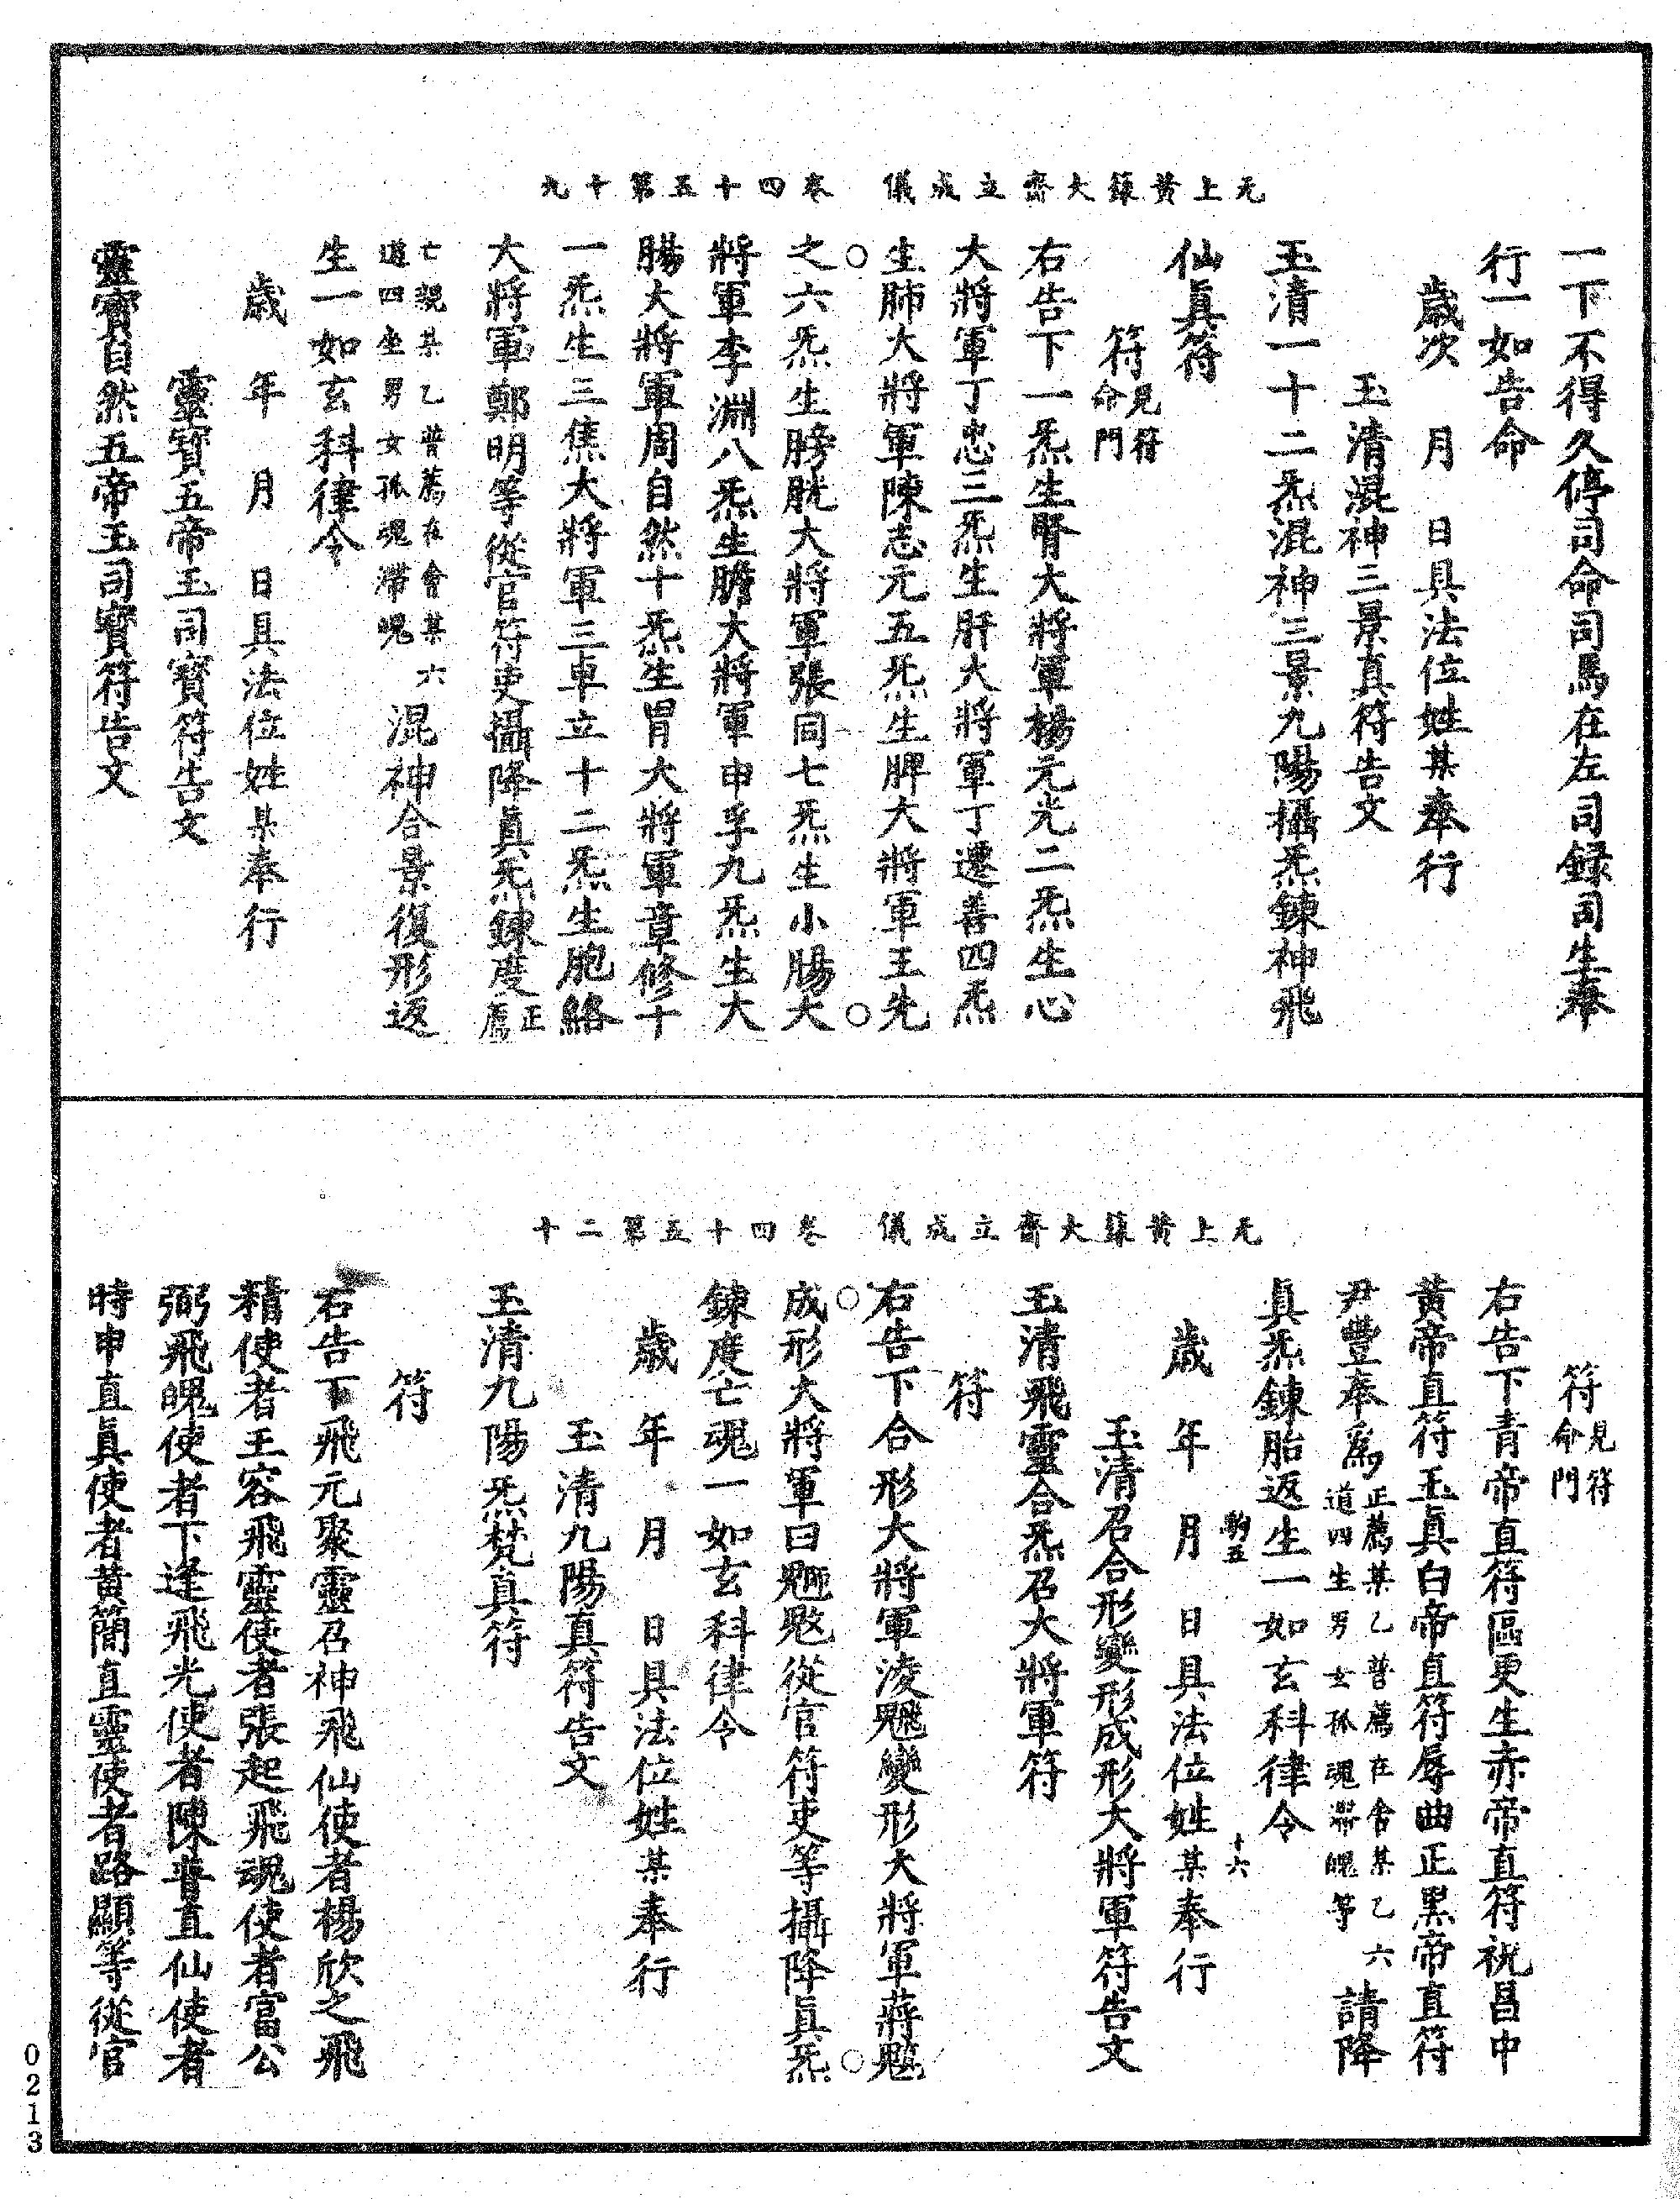 无上黃籙大齋立成儀　卷四十五第十九
一下不得久停司命司馬在左司録司生奉
行一如告命
歲次　月　日具法位姓某奉行
玉清混神三景真符告文
玉清一十二炁混神三景九陽攝炁鍊神飛
仙真符
符見符命門
右告下一炁生腎大將軍楊元光二炁生心
大將軍丁忠三炁生肝大將軍丁遷善四炁
生肺大將軍陳志元五炁生脾大將軍王先
之六炁生膀胱大將軍張同七炁生小腸大
將軍李淵八炁生膽大將軍申孚九炁生大
腸大將軍周自然十炁生胃大將軍章修十
一炁生三焦大將軍三車立十二炁生胞絡
大將軍鄭明等從官符吏攝降真炁鍊度正薦
亡親某乙普薦在會某六
道四生男女孤魂滯魄混神合景復形返
生一如玄科律令
歲　年　月　日具法位姓某奉行
靈寶五帝玉司寶符告文
靈寶自然五帝玉司寶符告文
无上黃籙大齋立成儀　卷四十五第二十
符見符命門
右告下青帝直符區更生赤帝直符祝昌中
黃帝直符玉真白帝直符辱曲正黑帝直符
尹豐奉爲正薦某乙普薦在會某乙六道四生男女孤魂滯魄等請降
真炁鍊胎返生一如玄科律令
歲　年　月　日具法位姓某奉行
玉清召合形變形成形大將軍符告文
玉清飛靈合炁召大將軍符
符
右告下合形大將軍淩變形大將軍蔣
成形大將軍曰從官符吏等攝降真炁
鍊度亡魂一如玄科律令
歲　年　月　日具法位姓某奉行
玉清九陽真符告文
玉清九陽炁梵真符
符
右告下飛元聚靈召神飛仙使者楊欣之飛
精使者王容飛靈使者張起飛魂使者富公
弼飛魄使者下逢飛光使者陳普直仙使者
時申直真使者黃簡直靈使者路顯等從官
0213